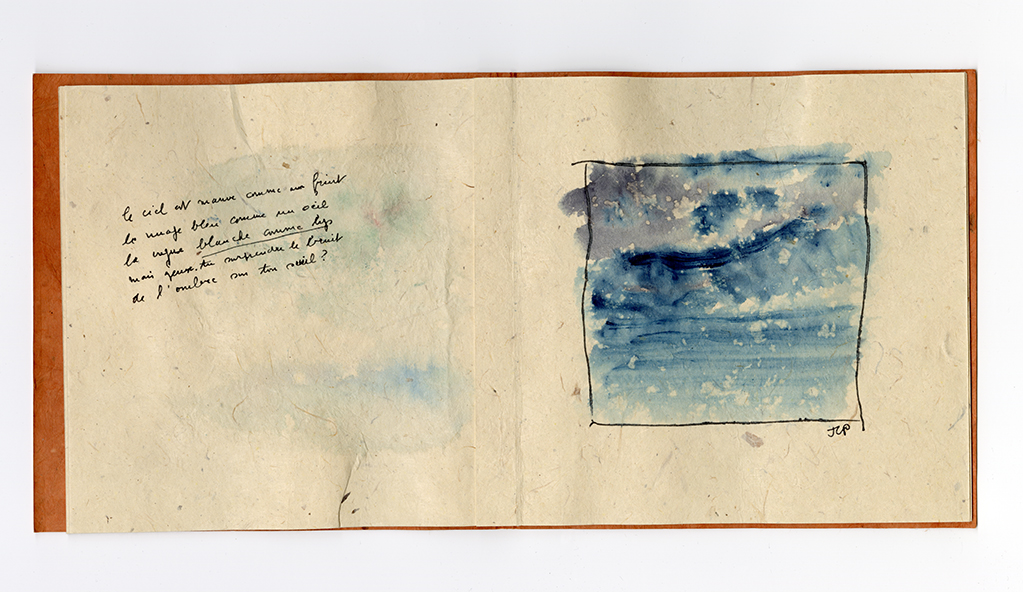 le ciel est mauve comme un fruit
le nuage bleu comme un œil
la vague blanche comme lys
mais peux-tu surprendre le bruit
de l'ombre sur ton seuil ?
JCP